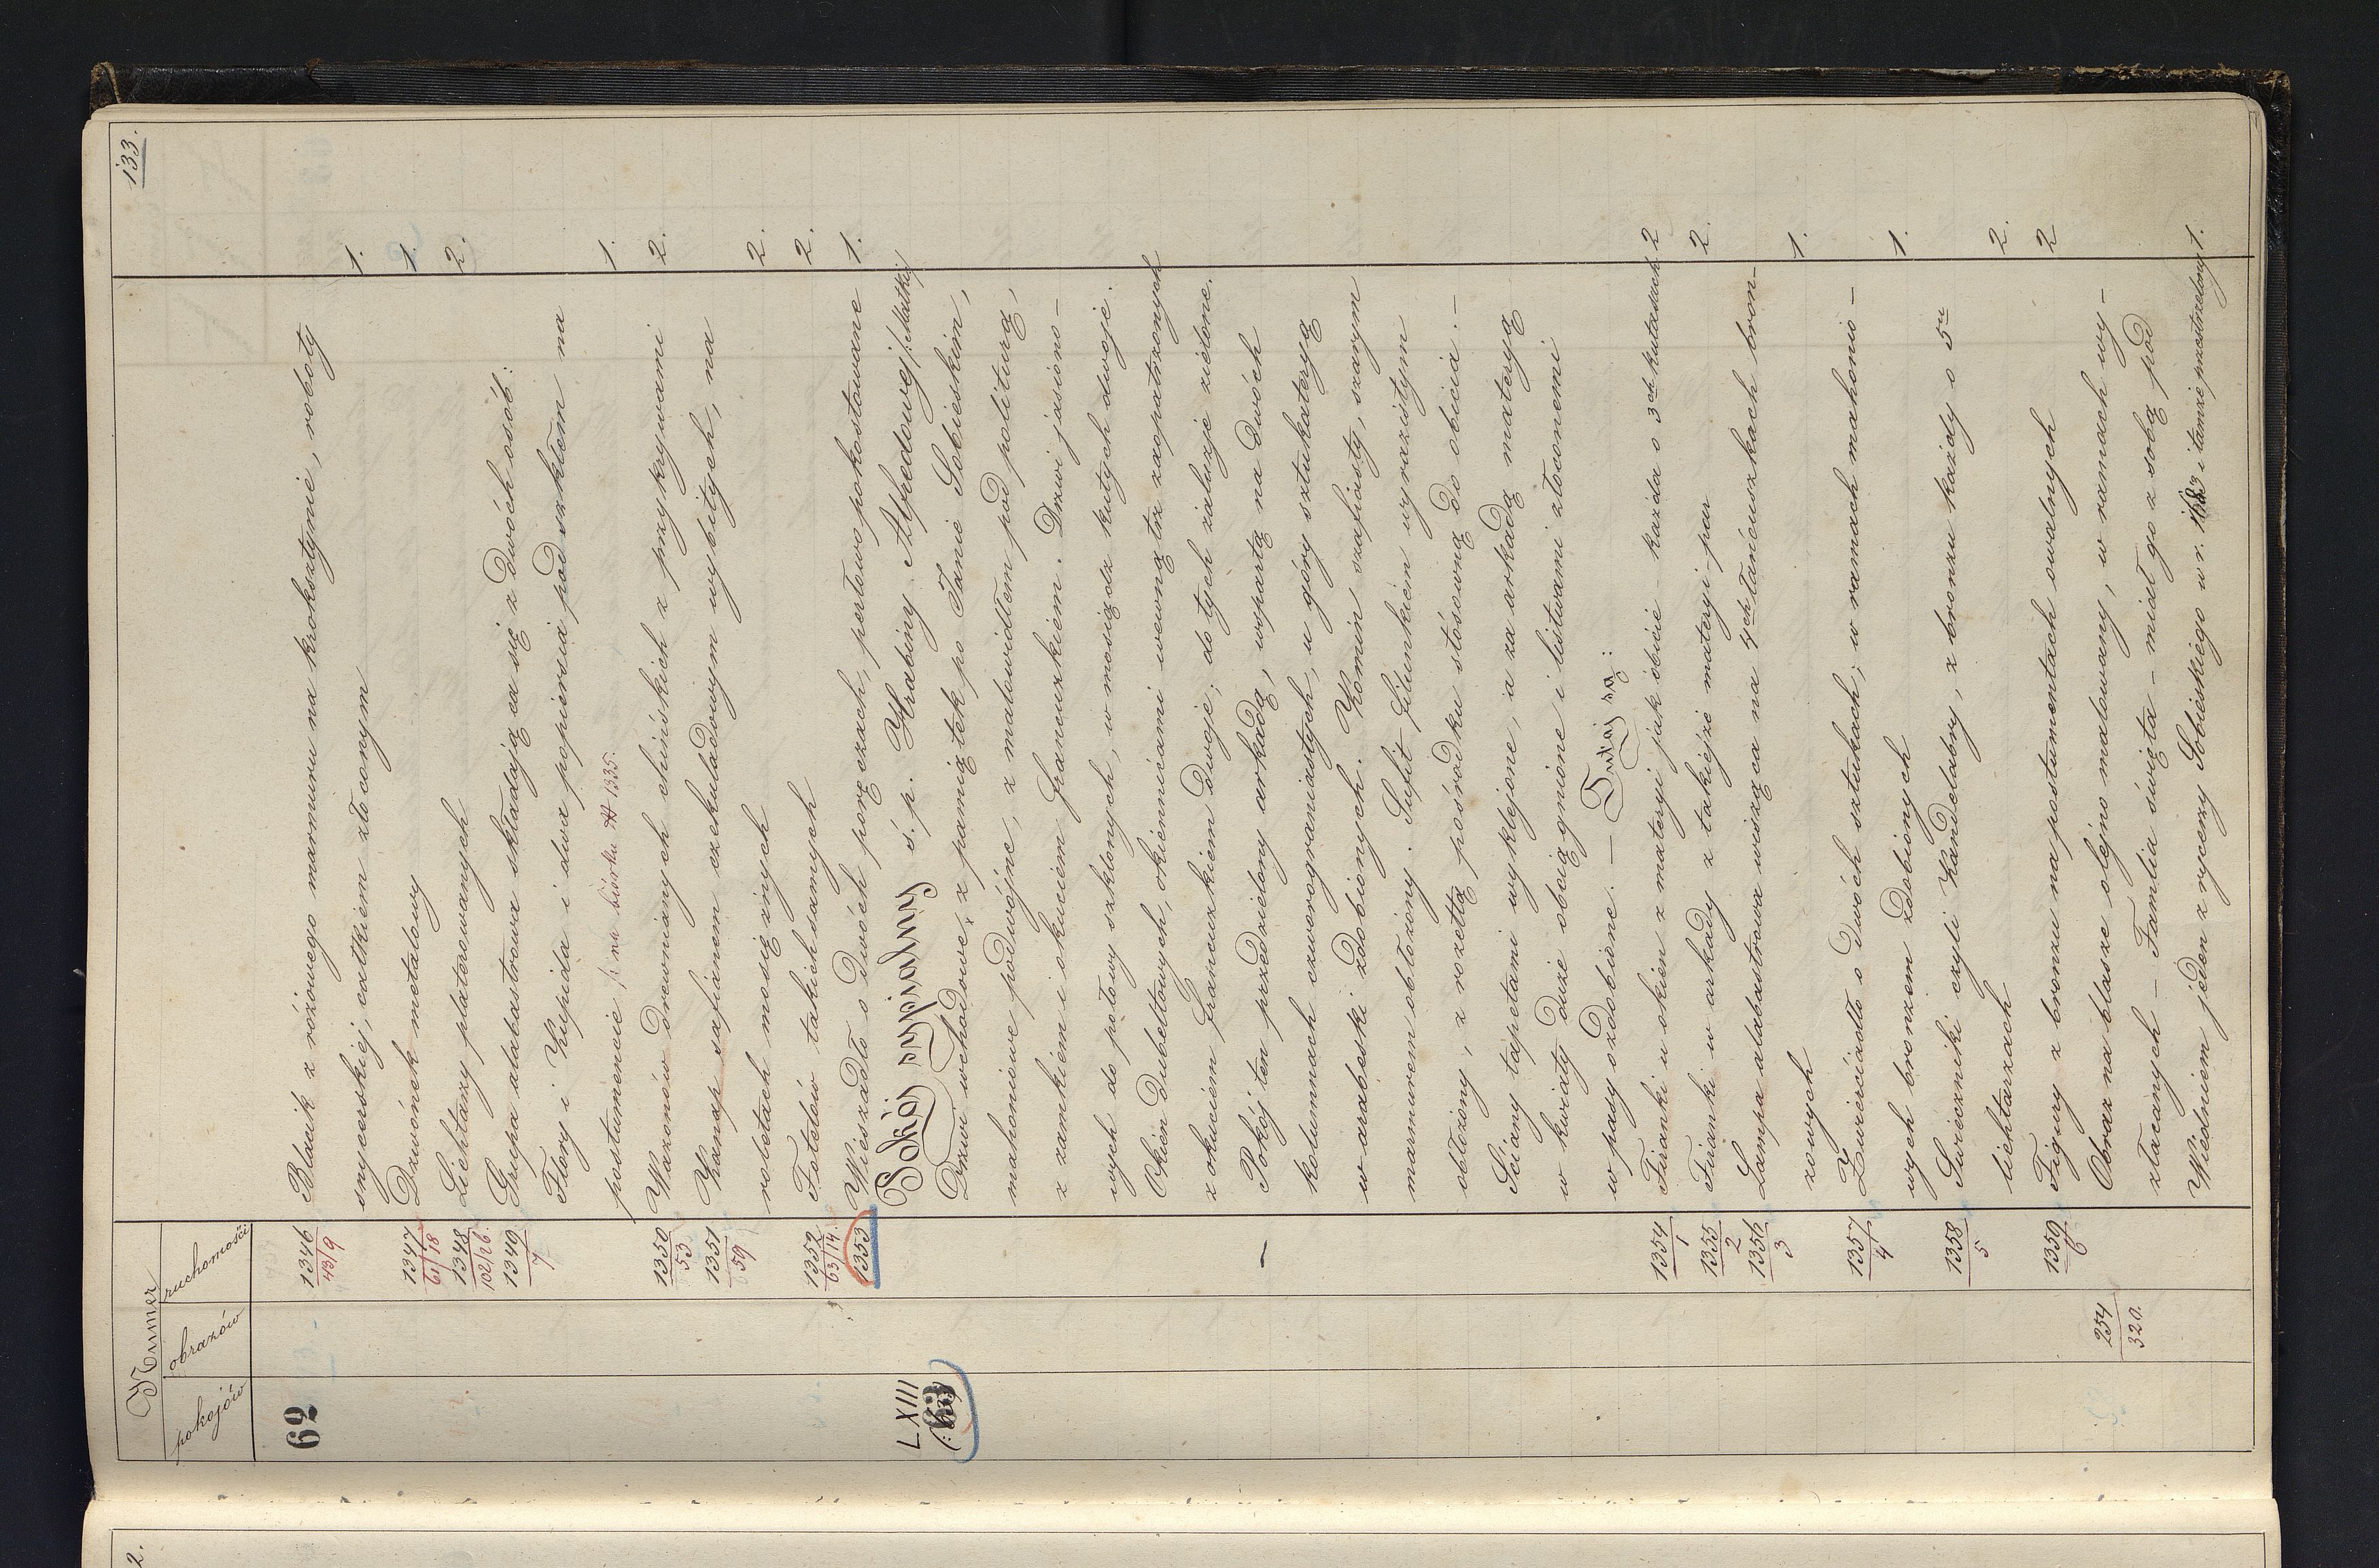 133.
Numer
pokojów obrazów ruchomości
62 1346 Blacik z różowego marmuru na kroksztynie, roboty
43/9 snycerskiej, całkiem złoconym 1.
1347 Dzwónek metalowy 1.
61/18
1348 Lichtarzy platerowanych 2.
102/26
1349 Grupa alabastrowa składająca się z dwóch osób:
7 Flory i Kupida i dwa popiersia pod szkłem na
postumencie /: na biurku N 1335. 1.
1350 Wazonów drewnianych chińskich z przykrywami 2.
53
1351 Kanap safianem czekuladowym wybitych, na
59 roletach mosiężnych 2.
1352 Fotelów takichsamych 2.
63/14.
1353 Wieszadło o dwóch poręczach, perłowo pokostowane 1.
LXIII Pokój sypialny ś. p. Hrabiny Alfredowej /: Matki :/
63 Drzwi wchodowe, z pamiątek po Janie Sobieskim,
mahoniowe podwójne, z malowidłem pod politurą,
z zamkiem i okuciem francuzkiem. Drzwi jasiono-
wych do połowy szklonych, w mosiądz kutych dwoje.
Okien dubeltowych, okiennicami wewnątrz zaopatrzonych
z okuciem francuzkiem dwoje; do tych żaluzje zielone.
– Pokój ten przedzielony arkadą, wspartą na dwóch
kolumnach czworograniastych, u góry sztukateryą
w arabeski zdobionych. Komin szafiasty, szarym
marmurem obłożony. Sufit filunkiem wyrazistym
obłożony, z rozettą pośrodku stósowną do obicia. –
Ściany tapetami wyklejone, a za arkadą materyą
w kwiaty duże obciągnione i listwami złoconemi
w pasy ozdobione. – Tutaj są:
1354 Firanki u okien z materyi jak obicie każda o 3ch kutasach 2
1
1355 Firanki w arkady z takiejże materyi par 2.
2
1356 Lampa alabastrowa wisząca na 4ch łańcuszkach bron-
3 zowych 1.
1357 Zwierciadło o dwóch sztukach, w ramach mahonio-
4 wych bronzem zdobionych 1.
1358 Świeczniki czyli Kandelabry, z bronzu każdy o 5u
5 lichtarzach 2.
1359 Figury z bronzu na postumentach owalnych 2
6
254 Obraz na blasze olejno malowany, w ramach wy-
320. złacanych – Familia święta – miał go z sobą pod
Wiedniem jeden z rycerzy Sobieskiego w r. 1683 i tamże przestrzelony 1.
2.